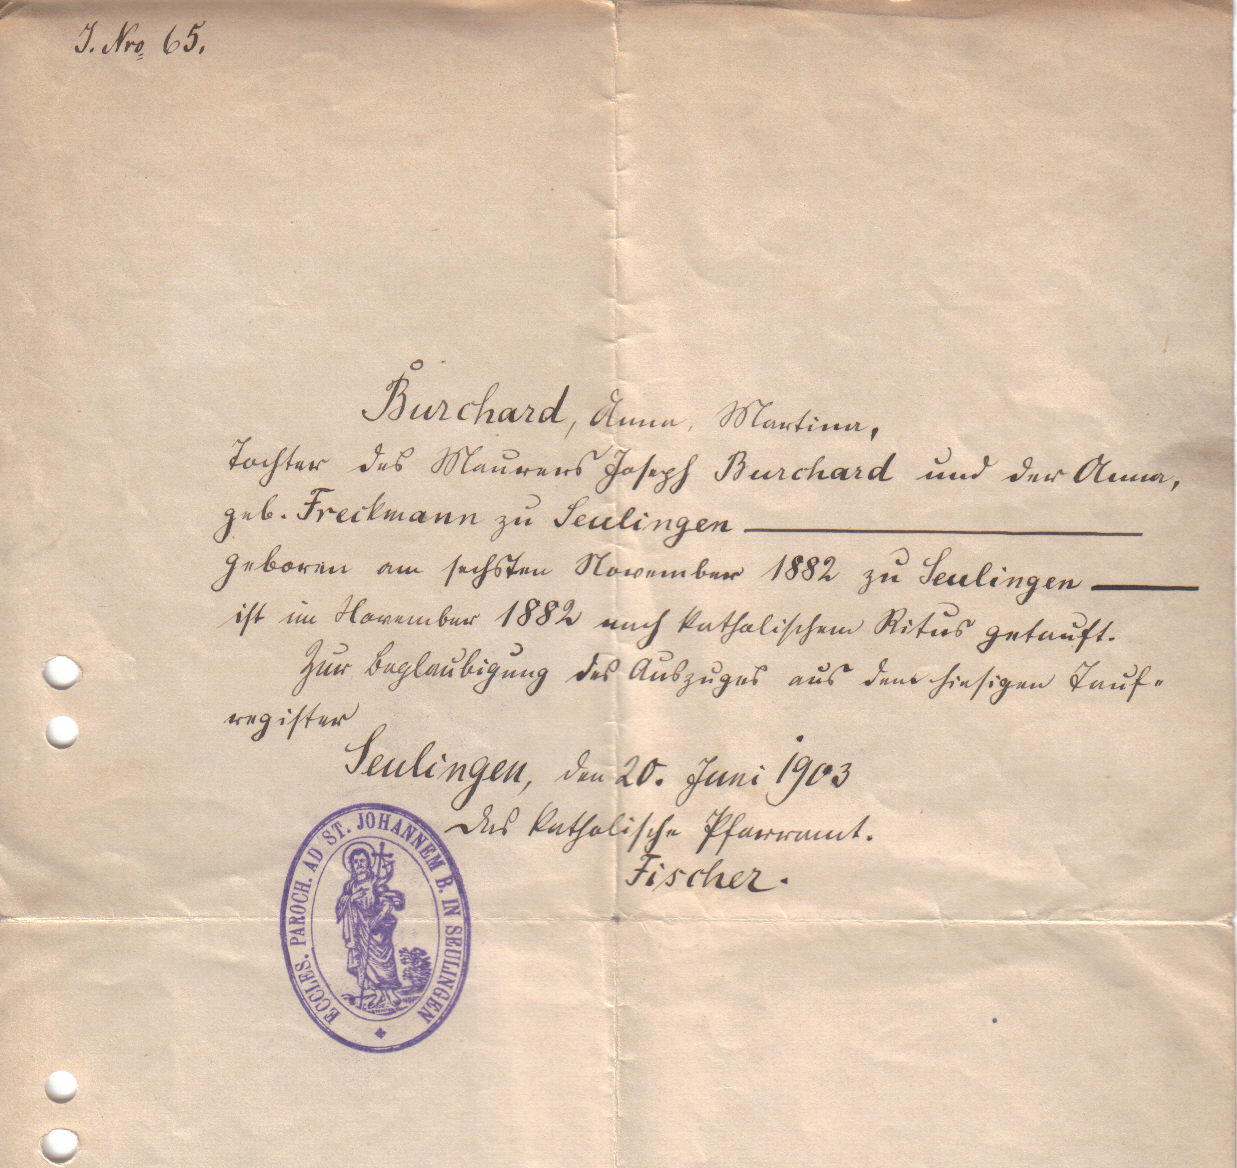 J. Nro 65.
Burchard, Anna Martina,
Tochter des Maurers Joseph Burchard und der Anna,
geb. Freckmann zu Seulingen
geboren am sechsten November 1882 zu Seulingen
ist im November 1882 nach katholischem Ritus getauft.
Zur Beglaubigung des Auszuges aus dem hiesigen Tauf-
register
Seulingen, den 20. Juni 1903
Das katholische Pfarramt.
Fischer.
ECCLES. PAROCH. AD ST. JOHANNEM B. IN SEULINGEN